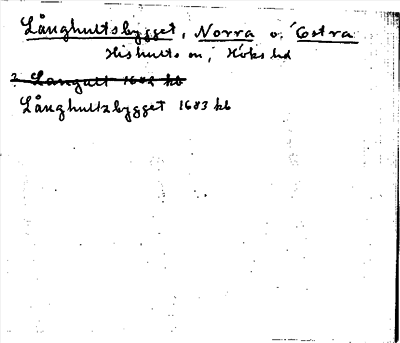 Långhultsbygget, Norra o. Östra
Hishults sn, Höks hd
? Langult 1682 kb
Långhultzbygget 1683 kb